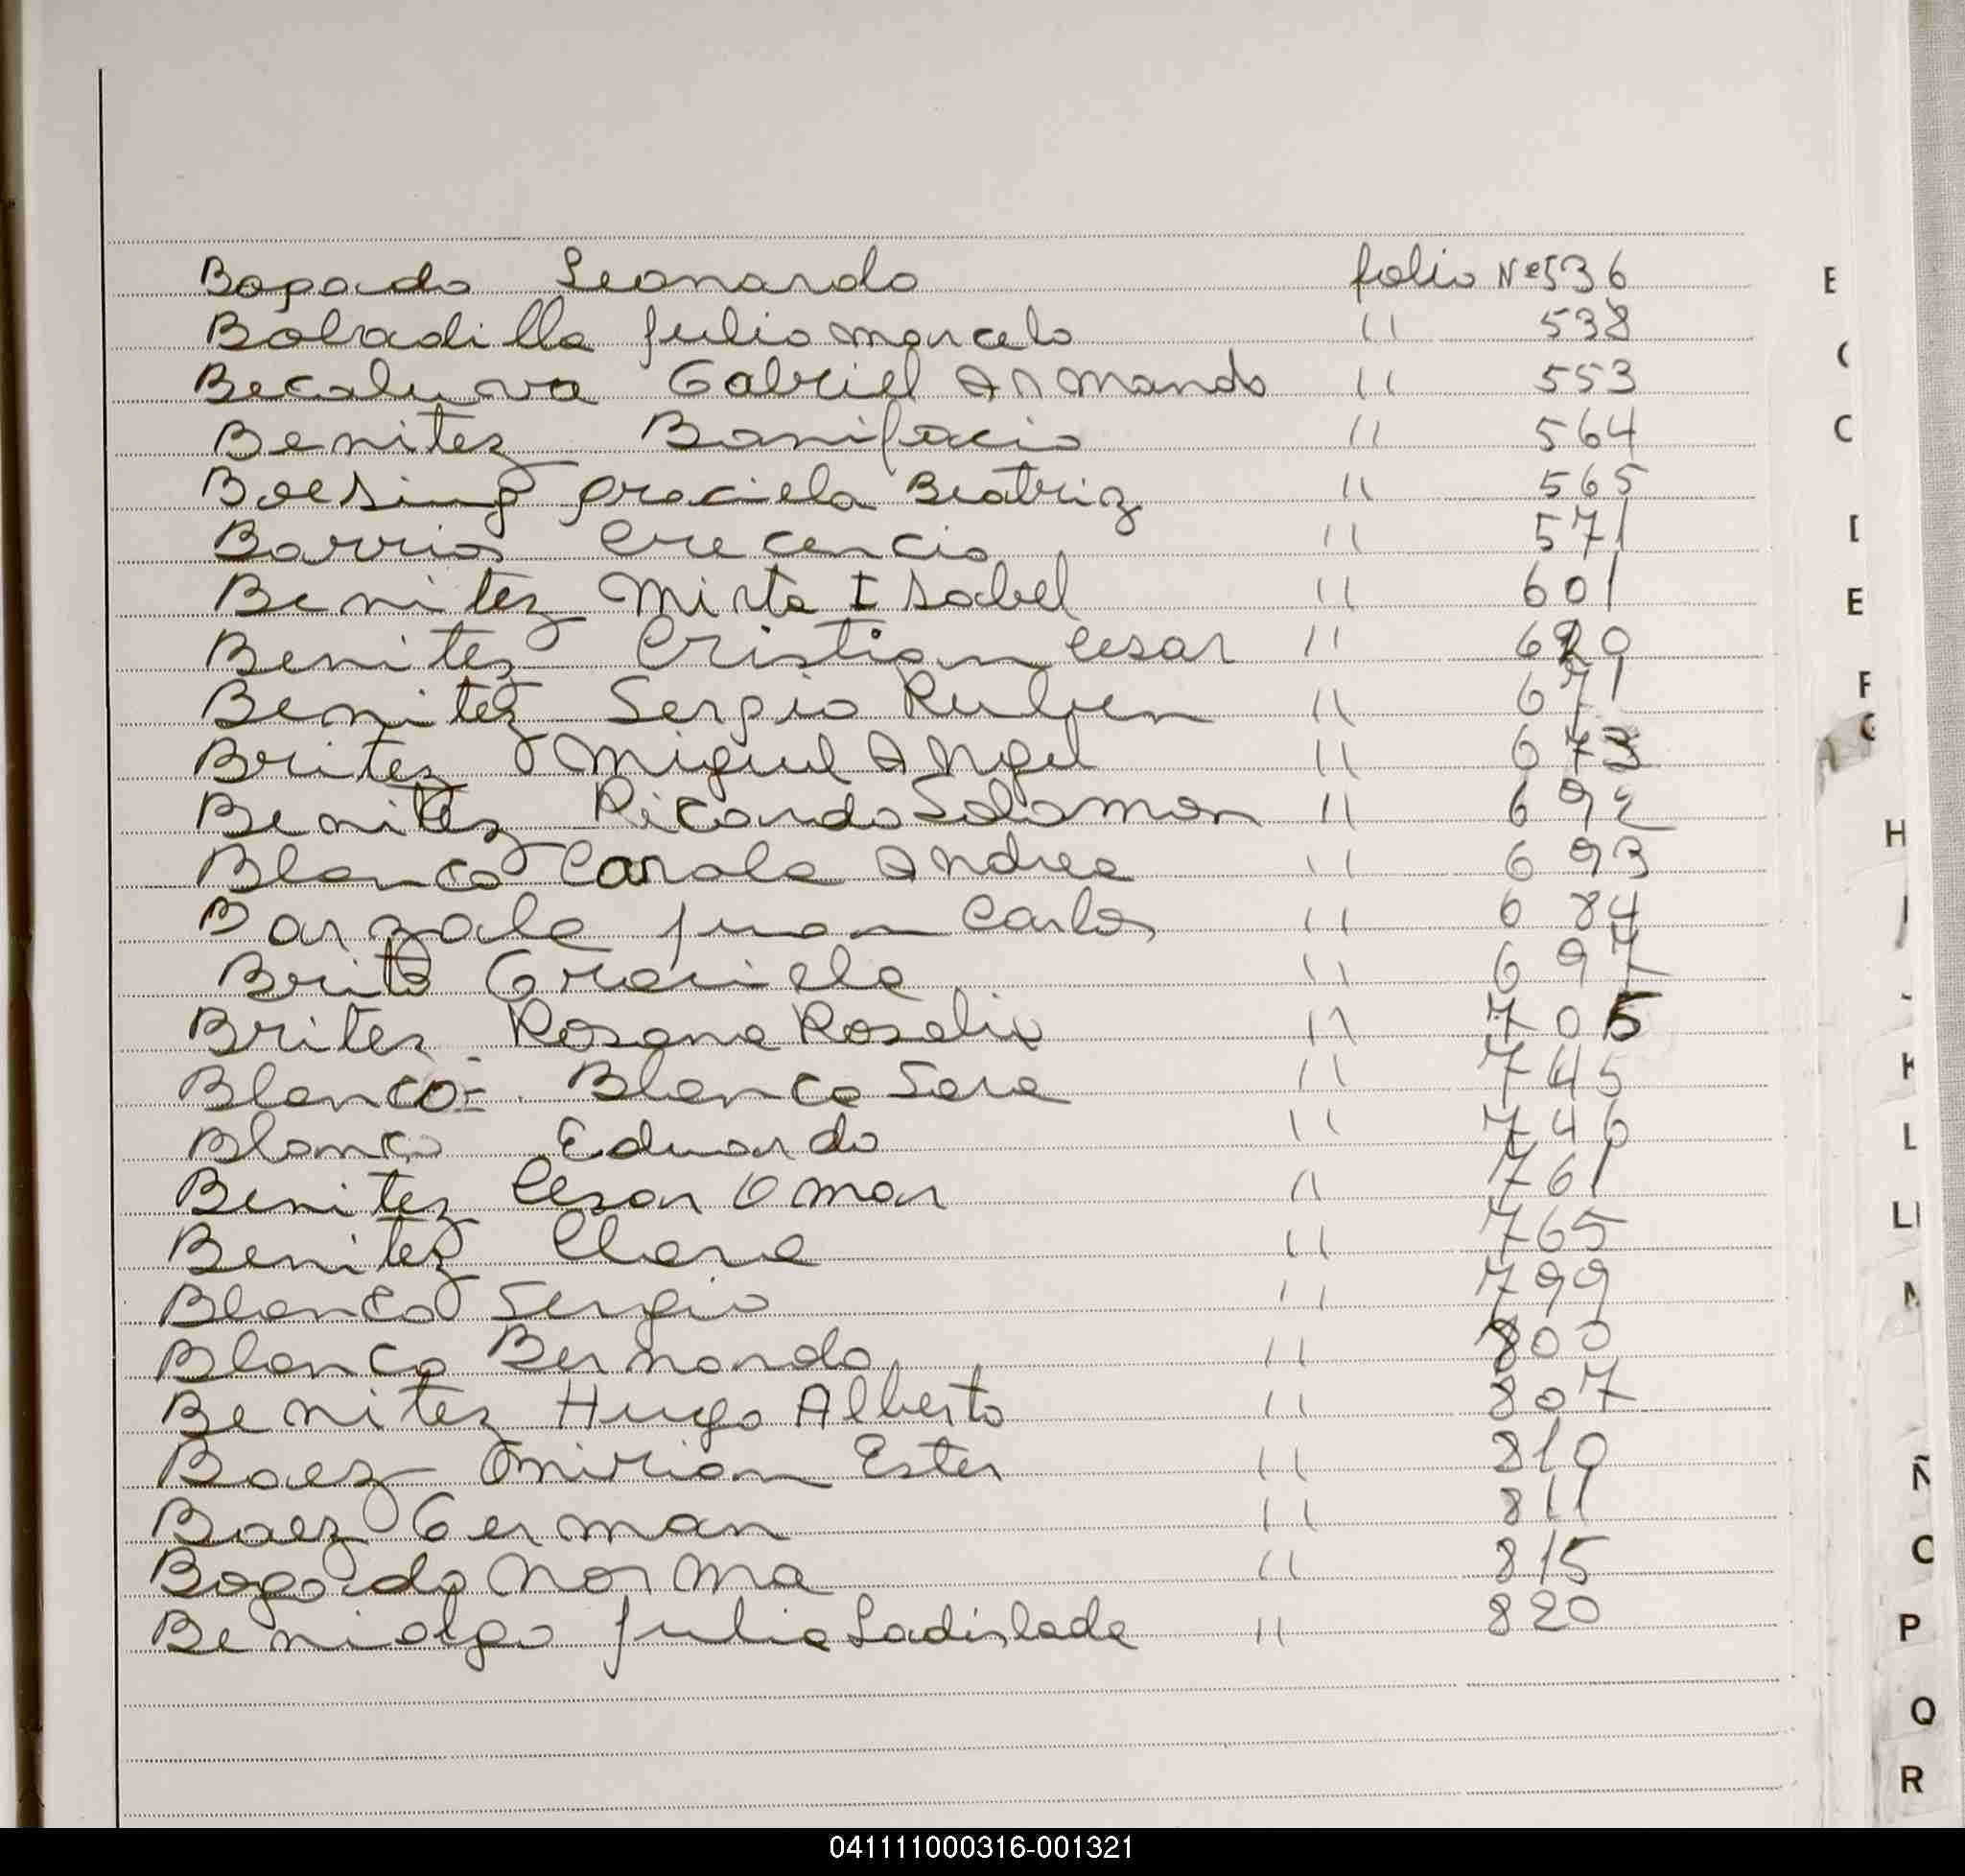 Bogado Leonardo folio Nº 536
Bobadilla Julio Marcelo " 538
Gabriel Armando " 553
Benitez Bonifacio " 564
Boesing Graciela Beatriz " 565
Barrios Crecencio " 571
Benitez Mirta Isabel " 601
Benitez Cristian Cesar " 620
Benitez Sergio Ruben " 671
Britez Miguel Angel " 673
Benitez Ricardo Salomon " 692
Blanco Carola Andrea " 693
Barzala Juan Carlos " 684
Brito Graciela " 697
Britez Rosana Rosalia " 705
Blanco Blanco Sara " 745
Blanco Eduardo " 746
Benitez Cesar Omar " 761
Benitez Clara " 765
Blanco Sergio " 799
Blanco Bernardo " 800
Benitez Hugo Alberto " 807
Baez Mirian Ester " 810
Baez German " 811
Bogado Norma " 815
Julia Ladislada " 820
E
C
C
E
F
G
H
L
LL
M
Ñ
O
P
Q
R
041111000316-001321